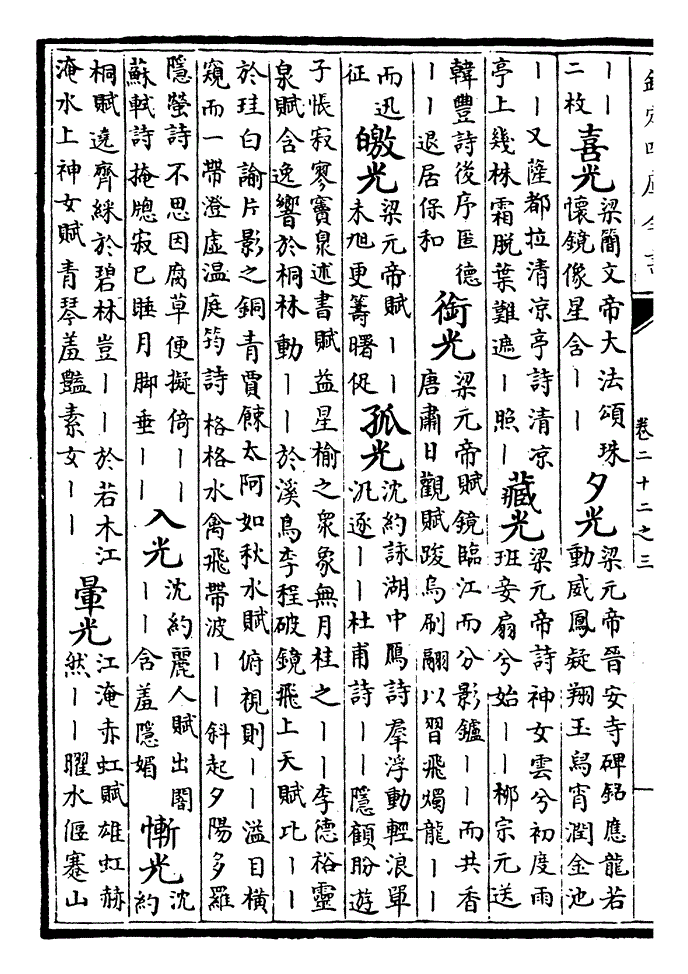 欽定四庫全書
卷二十二之三
｜｜二枚 喜光 梁簡文帝大法頌珠懷鏡像星含｜｜ 夕光 梁元帝晉安寺碑銘應龍若動威鳳疑翔玉舄宵潤金池
｜｜又薩都拉清凉亭詩清凉亭上幾株霜脱葉難遮｜照｜ 藏光 梁元帝詩神女雲兮初度雨班妾扇兮始｜｜柳宗元送
韓豐詩後序匿德｜｜退居保和 銜光 梁元帝賦鏡臨江而分影鑪｜｜而共香唐肅日觀賦踆烏刷翮以習飛燭龍｜｜
而迅征 皦光 梁元帝賦｜｜未旭更籌曙促 孤光 沈約詠湖中鴈詩羣浮動輕浪單汎逐｜｜杜甫詩｜｜隱顧盼遊
子悵寂寥竇泉述書賦益星榆之衆象無月桂之｜｜李德裕靈泉賦含逸響於桐林動｜｜於溪鳥李程破鏡飛上天賦比｜｜
於珪白諭片影之銅青賈餗太阿如秋水賦俯視則｜｜溢目橫窺而一帶澄虛温庭筠詩格格水禽飛帶波｜｜斜起夕陽多羅
隱螢詩不思因腐草便擬倚｜｜蘇軾詩掩牕寂已睡月脚垂｜｜ 入光 沈約麗人賦出閤｜｜含羞隱媚 慚光 沈約
桐賦遶齊綵於碧林豈｜｜於若木江淹水上神女賦青琴羞豔素女｜｜ 暈光 江淹赤虹賦雄虹赫然｜｜曜水偃蹇山